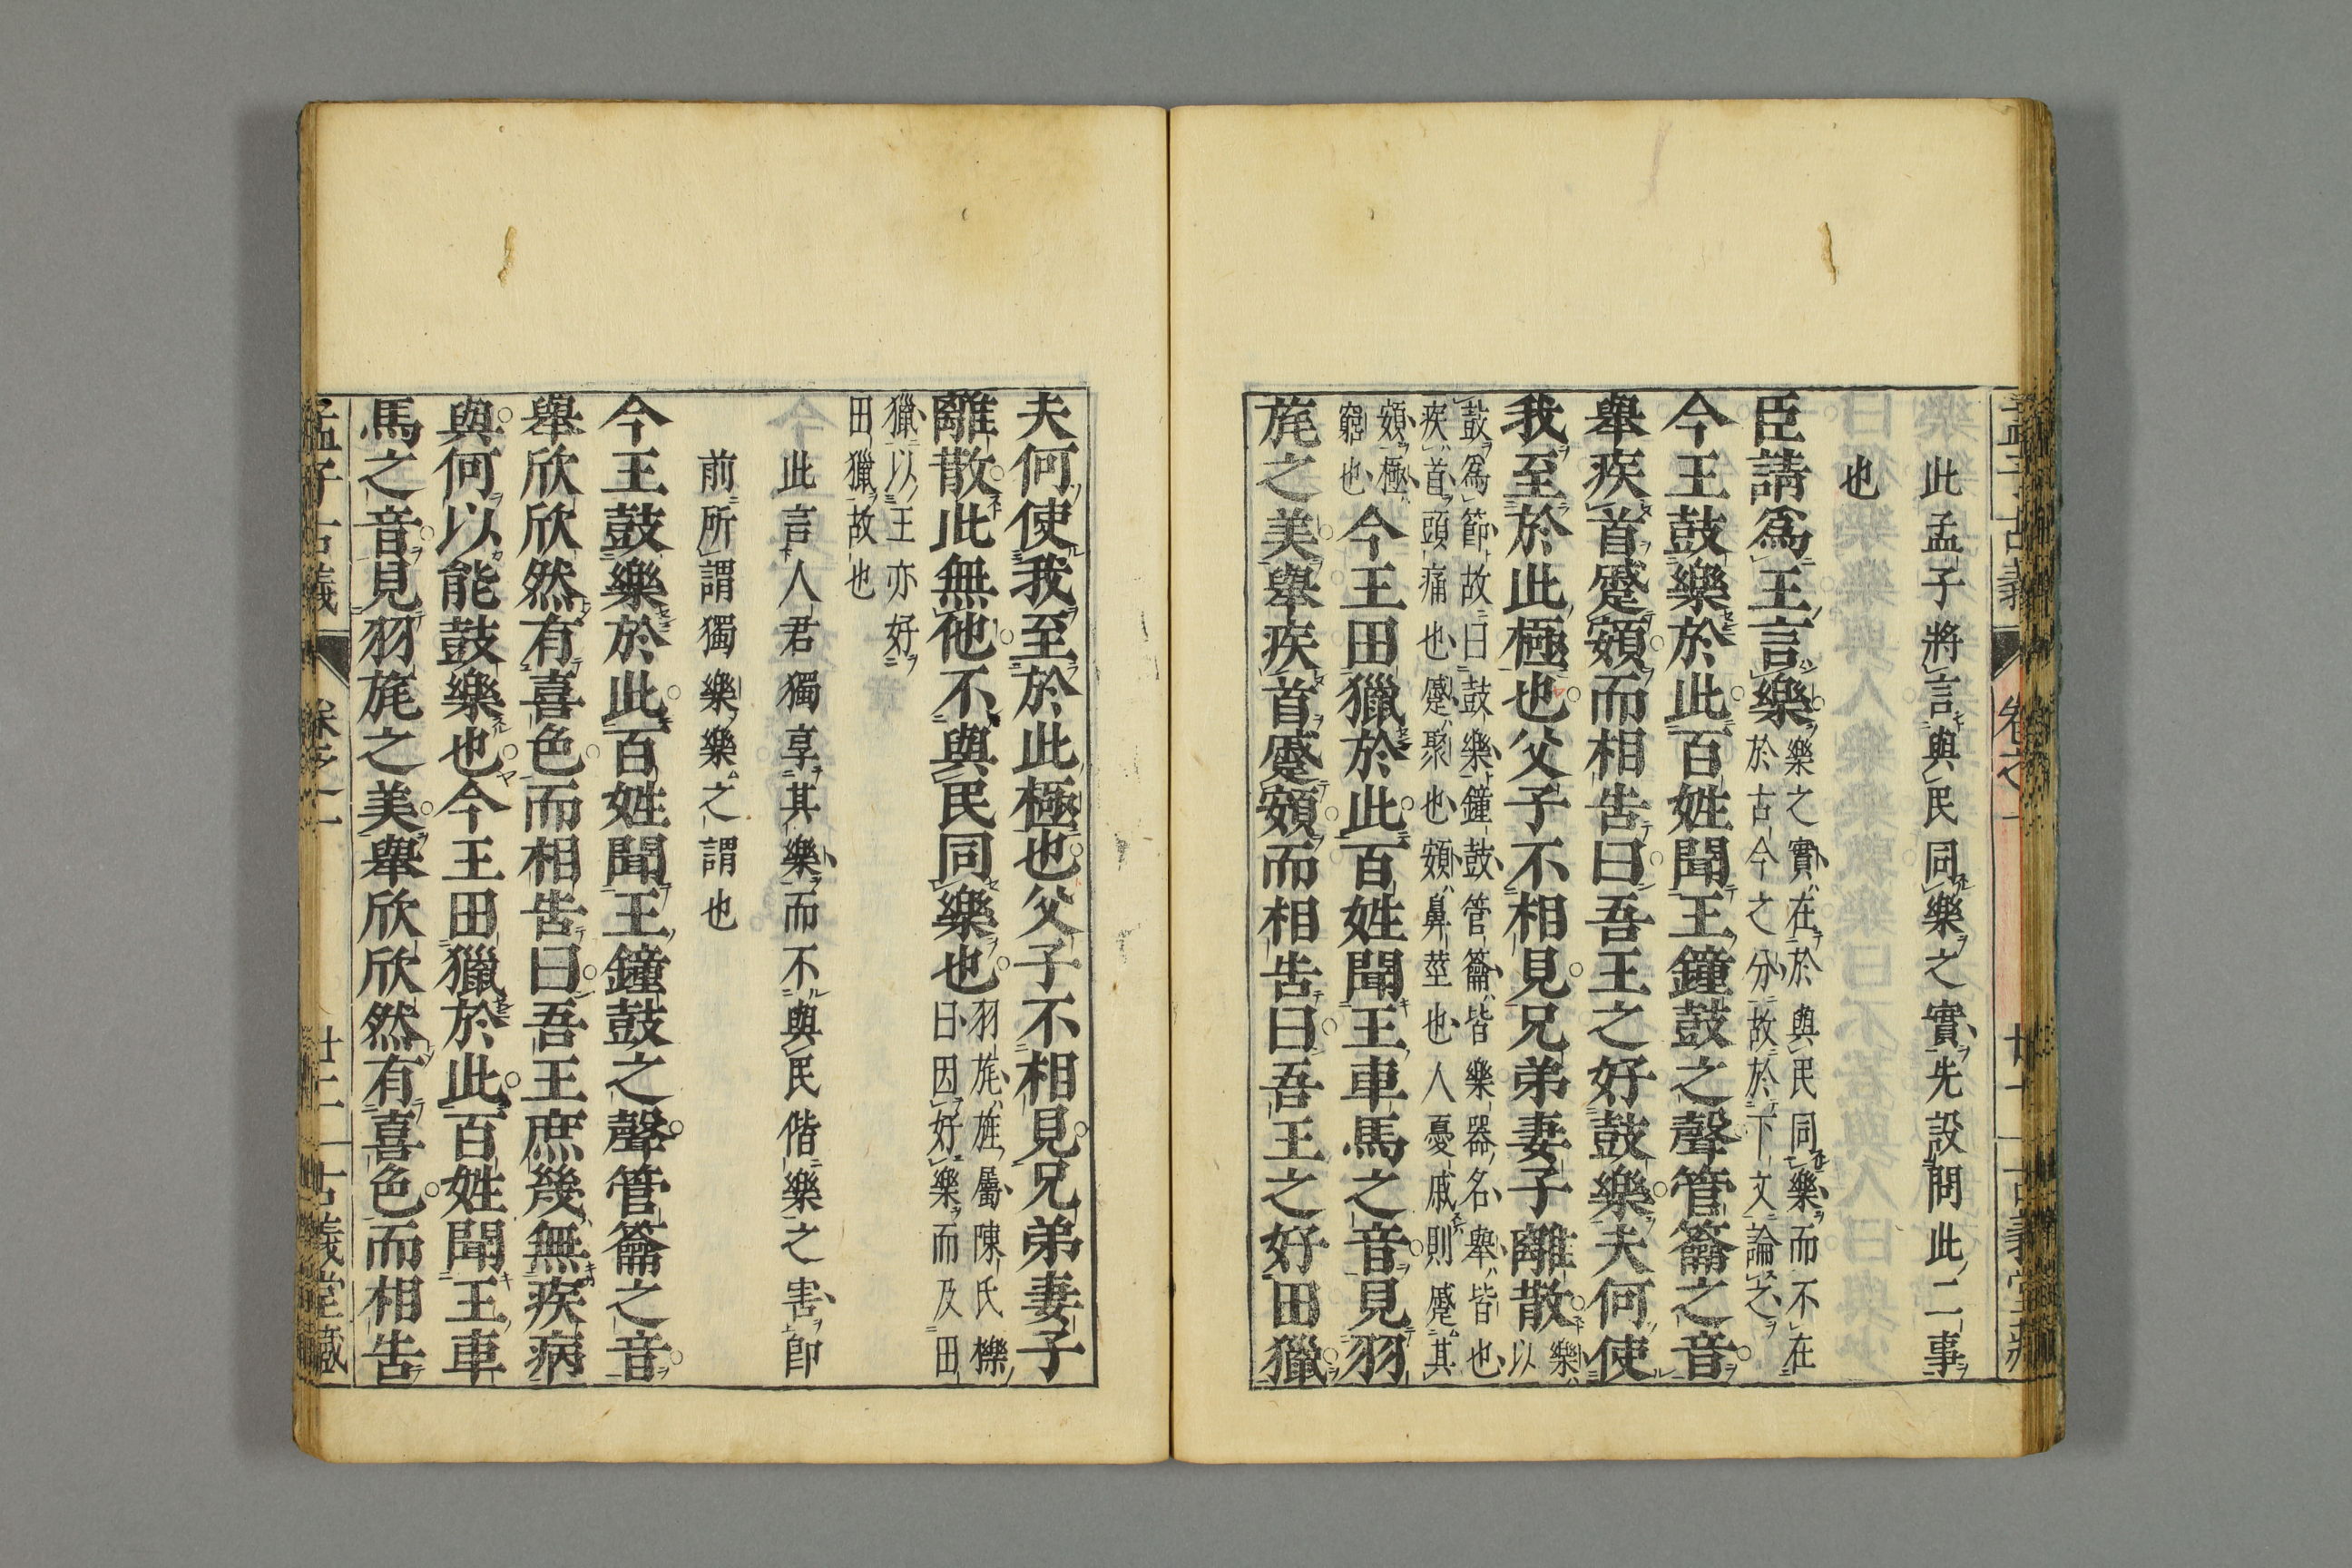 此孟子將言與民同樂之實先設問此二事
也
臣請爲王言樂
樂之實在於與民同樂而不在
於古今之分故於下文論之
今王鼓樂於此百姓聞王鐘鼓之聲管籥之音
舉疾首蹙頞而相告曰吾王之好鼓樂夫何使
我至於此極也父子不相見兄弟妻子離散
樂
以
鼓爲節故曰鼓樂鐘鼓管籥皆樂器名舉皆也
疾首頭痛也蹙聚也頞鼻莖也人憂戚則蹙其
頞極
窮也
今王田獵於此百姓聞王車馬之音見羽
旄之美舉疾首蹙頞而相告曰吾王之好田獵
夫何使我至於此極也父子不相見兄弟妻子
離散此無他不與民同樂也
羽旄旌屬陳氏櫟
曰因好樂而及田
獵以王亦好
田獵故也
此言人君獨享其樂而不與民偕樂之害即
前所謂獨樂樂之謂也
今王鼓樂於此百姓聞王鐘鼓之聲管籥之音
舉欣欣然有喜色而相告曰吾王庶幾無疾病
與何以能鼓樂也今王田獵於此百姓聞王車
馬之音見羽旄之美舉欣欣然有喜色而相告
孟子古義 卷之一 廿二 古義堂藏